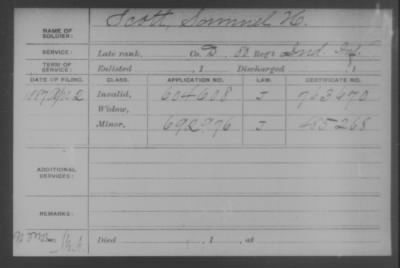 NAME OF SOLDIER: Scott, Sammuel H.
SERVICE: Late rank, Co. D, 51 Reg't Ind. Inf.
TERM OF SERVICE: Enlisted , 1 Discharged , 1
DATE OF FILING. CLASS. APPLICATION NO. LAW. CERTIFICATE NO.
1887 2 Invalid, 604608 J 763670
Widow,
Minor, 692976 J 485268
ADDITIONAL SERVICES:
REMARKS:
Died , 1 , at